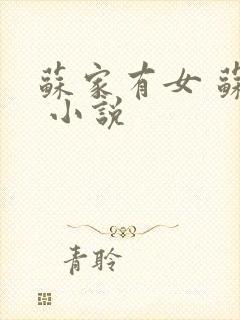 蘇家有女 蘇
小說
青聆